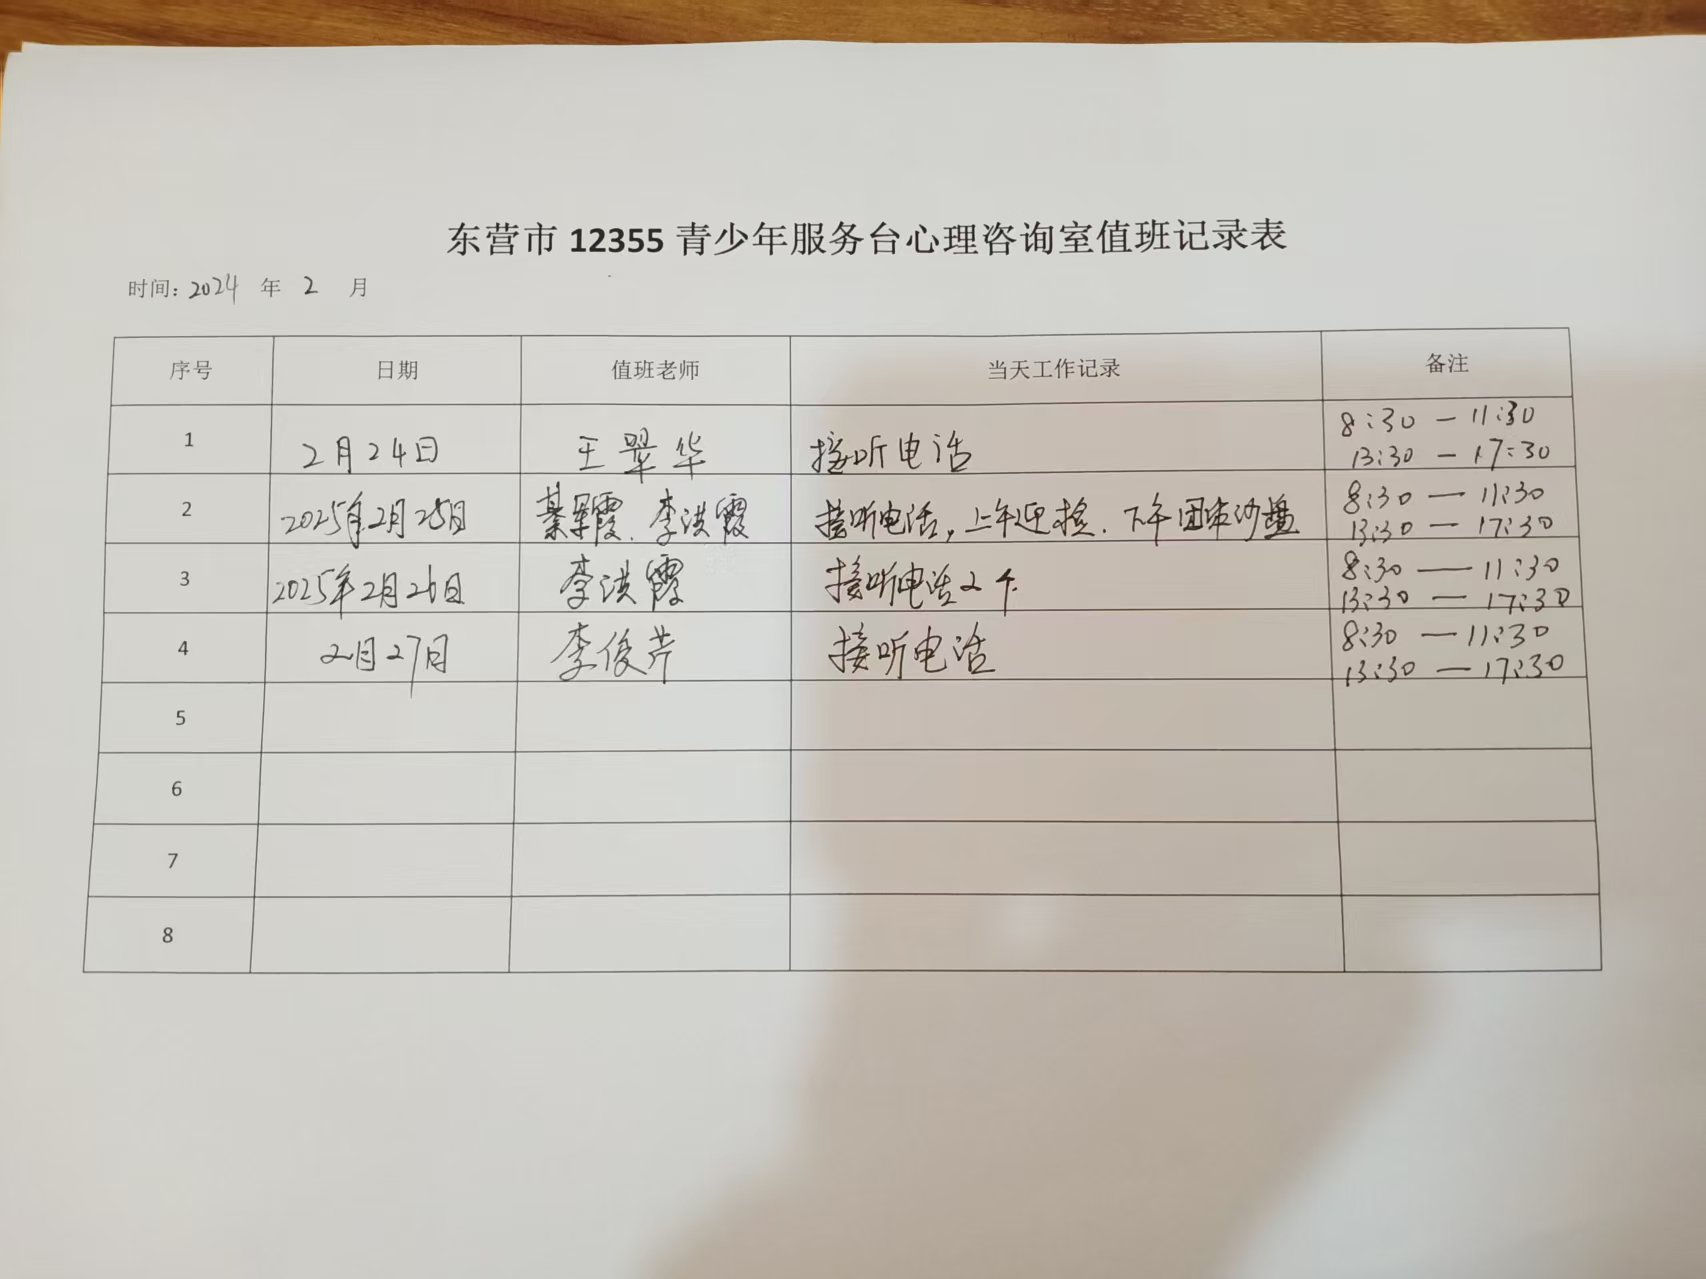 东营市 12355 青少年服务台心理咨询室值班记录表
时间: 2024 年 2 月
序号 日期 值班老师 当天工作记录 备注
1 2月24日 王翠华 接听电话 8:30 — 11:30
13:30 — 17:30
2 2025年2月25日 綦翠霞、李洪霞 接听电话,上午迎检、下午团体沙盘 8:30 — 11:30
13:30 — 17:30
3 2025年2月26日 李洪霞 接听电话2个 8:30 — 11:30
13:30 — 17:30
4 2月27日 李俊芹 接听电话 8:30 — 11:30
13:30 — 17:30
5
6
7
8